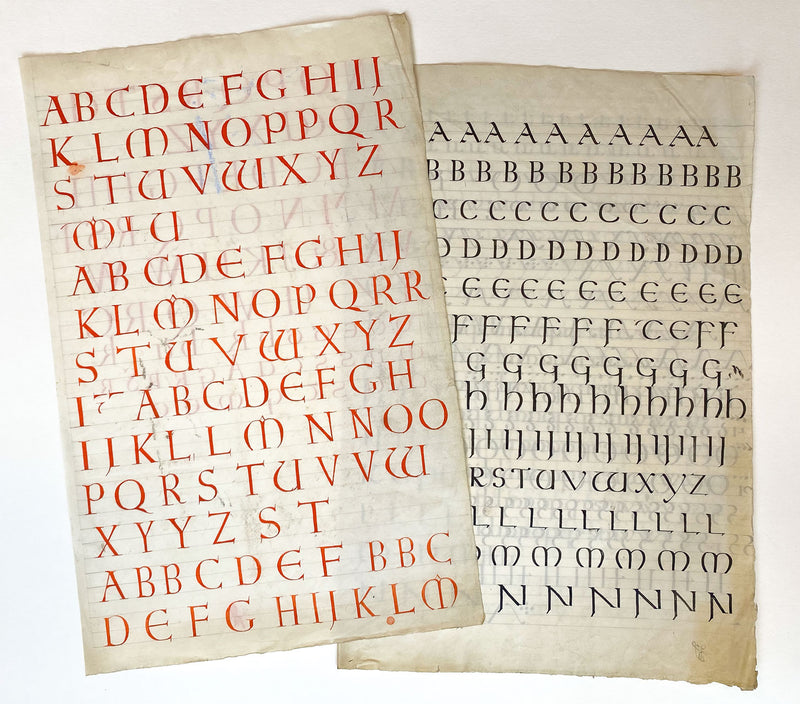 ABCDEFGHIJ
KLMNOPPQR
STUVWXYZ
MU
ABCDEFGHIJ
KLMNOPQRR
STUVWXYZ
I ABCDEFGH
IJKLLMNNOO
PQRSTUVVW
XYYZST
ABBCDEFBBC
DEFGHIJKLM
AAAAAAAAAA
BBBBBBBBBBBB
CCCCCCCCCCC
DDDDDDDDDDD
EEEEEEEEEE
FFFFFFCEFF
GGGGGGGG
hhhhhhhhhh
JIJIJIJIJIJIJ
RSTUVWXYZ
LLLLLLLLLL
MMMMMM
NNNNNN